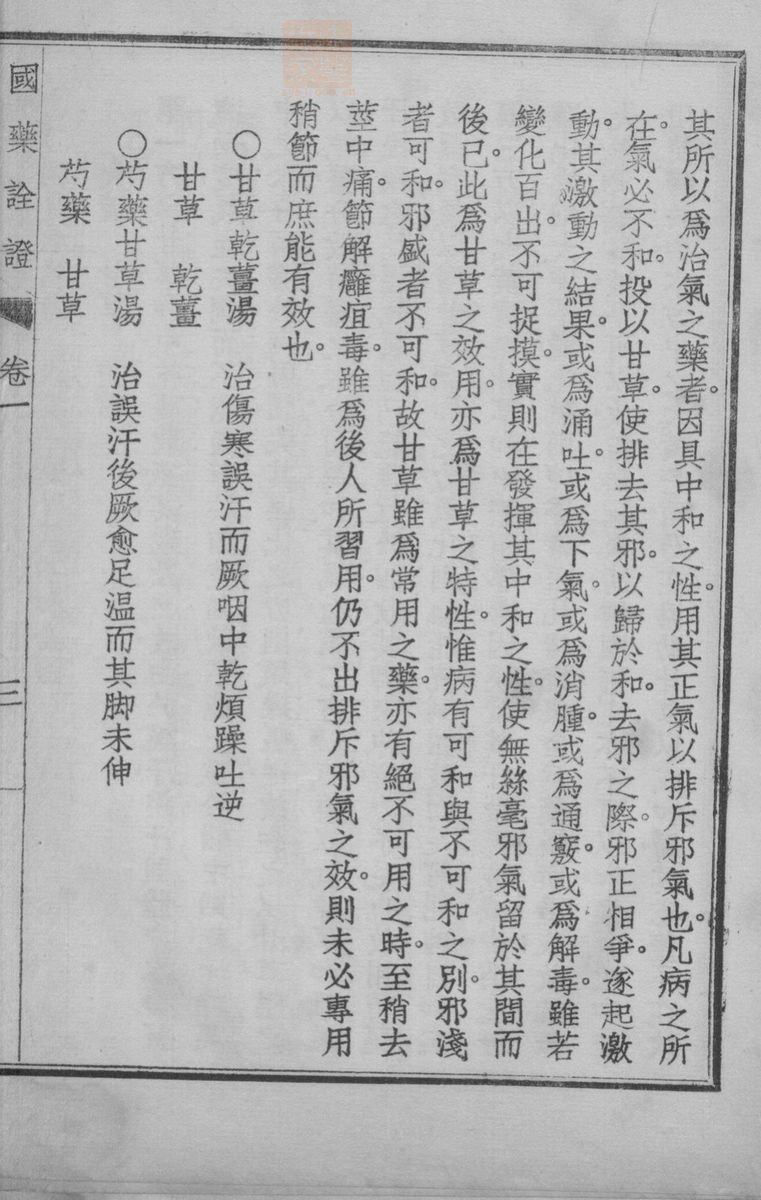 其所以爲治氣之藥者。因具中和之性。用其正氣以排斥邪氣也。凡病之所
在。氣必不和。投以甘草。使排去其邪。以歸於和。去邪之際。邪正相爭。遂起激
動。其激動之結果。或爲涌吐。或爲下氣。或爲消腫。或爲通竅。或爲解毒。雖若
變化百出。不可捉摸。實則在發揮其中和之性。使無絲毫邪氣留於其間而
後已。此爲甘草之效用。亦爲甘草之特性。惟病有可和與不可和之別。邪淺
者可和。邪盛者不可和。故甘草雖爲常用之藥。亦有絕不可用之時。至稍去
莖中痛。節解癰疽毒。雖爲後人所習用。仍不出排斥邪氣之效。則未必專用
稍節而庶能有效也。
○甘草乾薑湯　治傷寒誤汗而厥咽中乾煩躁吐逆
甘草　乾薑
○芍藥甘草湯　治誤汗後厥愈足溫而其脚未伸
芍藥　甘草
國藥詮證　卷一　三